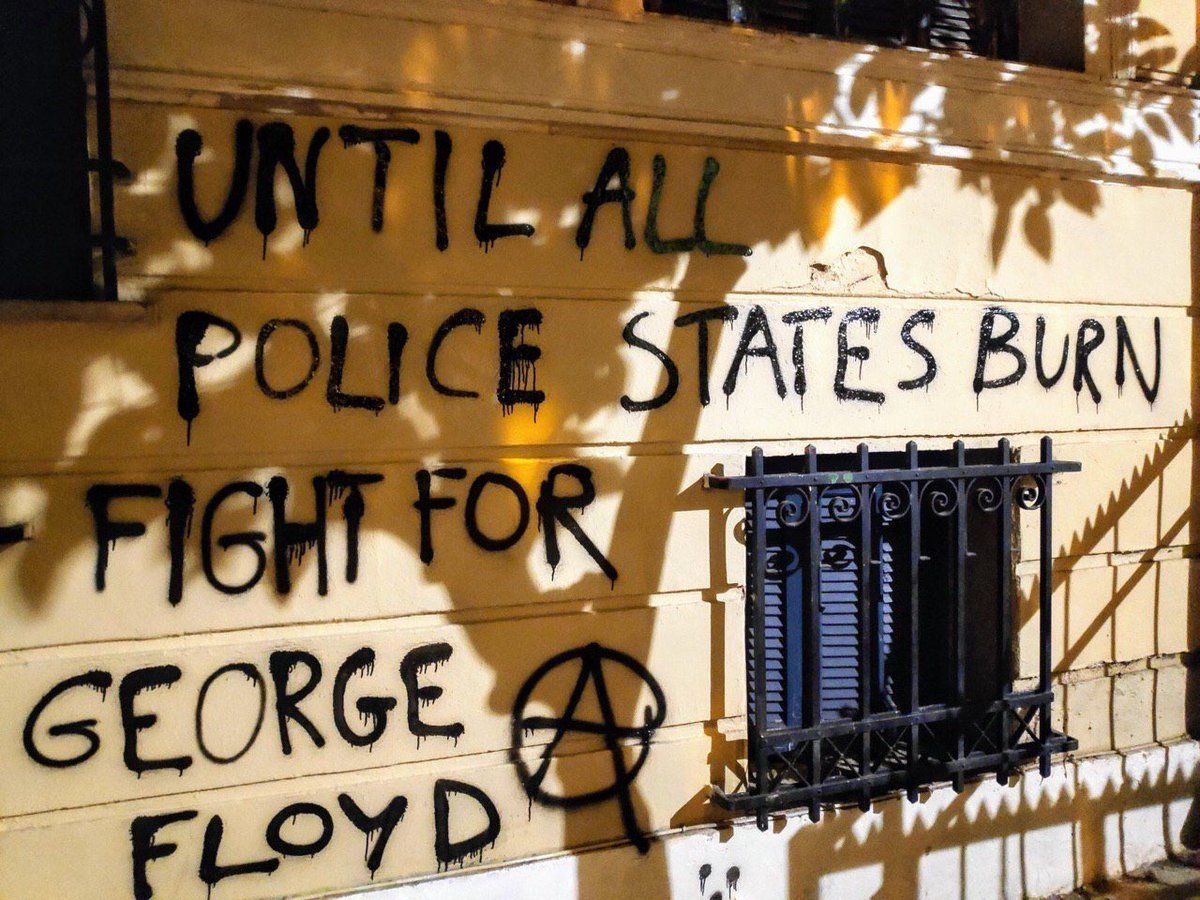 UNTIL ALL
POLICE STATES BURN
- FIGHT FOR
GEORGE
FLOYD